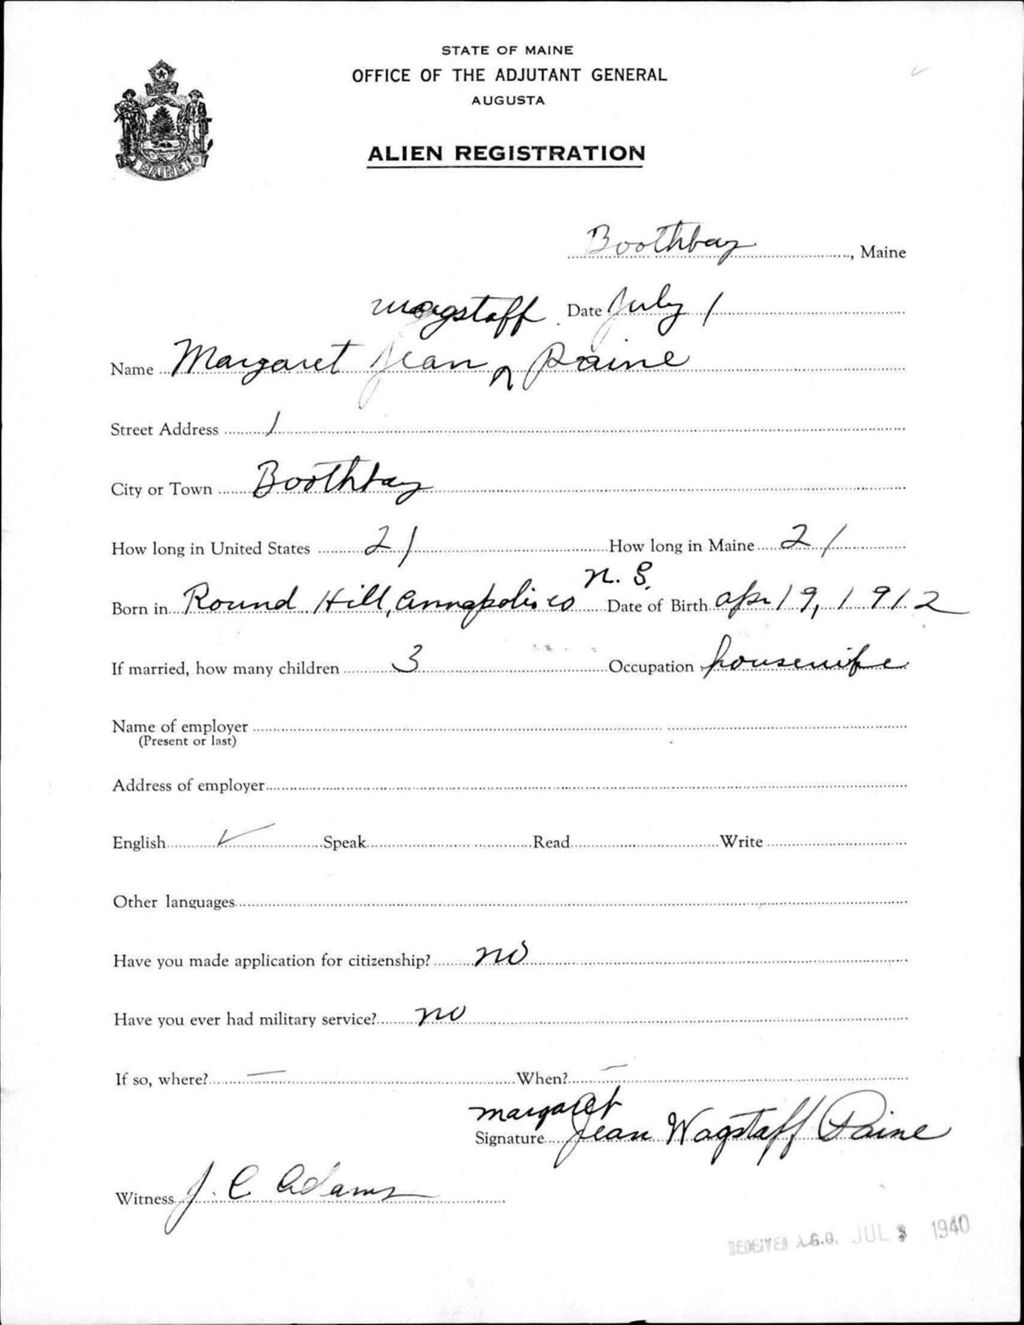 STATE OF MAINE
OFFICE OF THE ADJUTANT GENERAL
AUGUSTA
ALIEN REGISTRATION
MAINE
Boothbay, Maine
Wagstaff Date July 1
Name Margaret Jean ^ Paine
Street Address 1
City or Town Boothbay
How long in United States 21 How long in Maine 21
N. S.
Born in Round Hill, Annapolis co Date of Birth Apr 19, 1912
If married, how many children 3 Occupation housewife
Name of employer
(Present or last)
Address of employer
English ✓ Speak Read Write
Other languages
Have you made application for citizenship? no
Have you ever had military service? no
If so, where? — When? —
margaret
Signature Jean Wagstaff Paine
Witness J. C Adams
RECEIVED A.G.O. JUL 1940